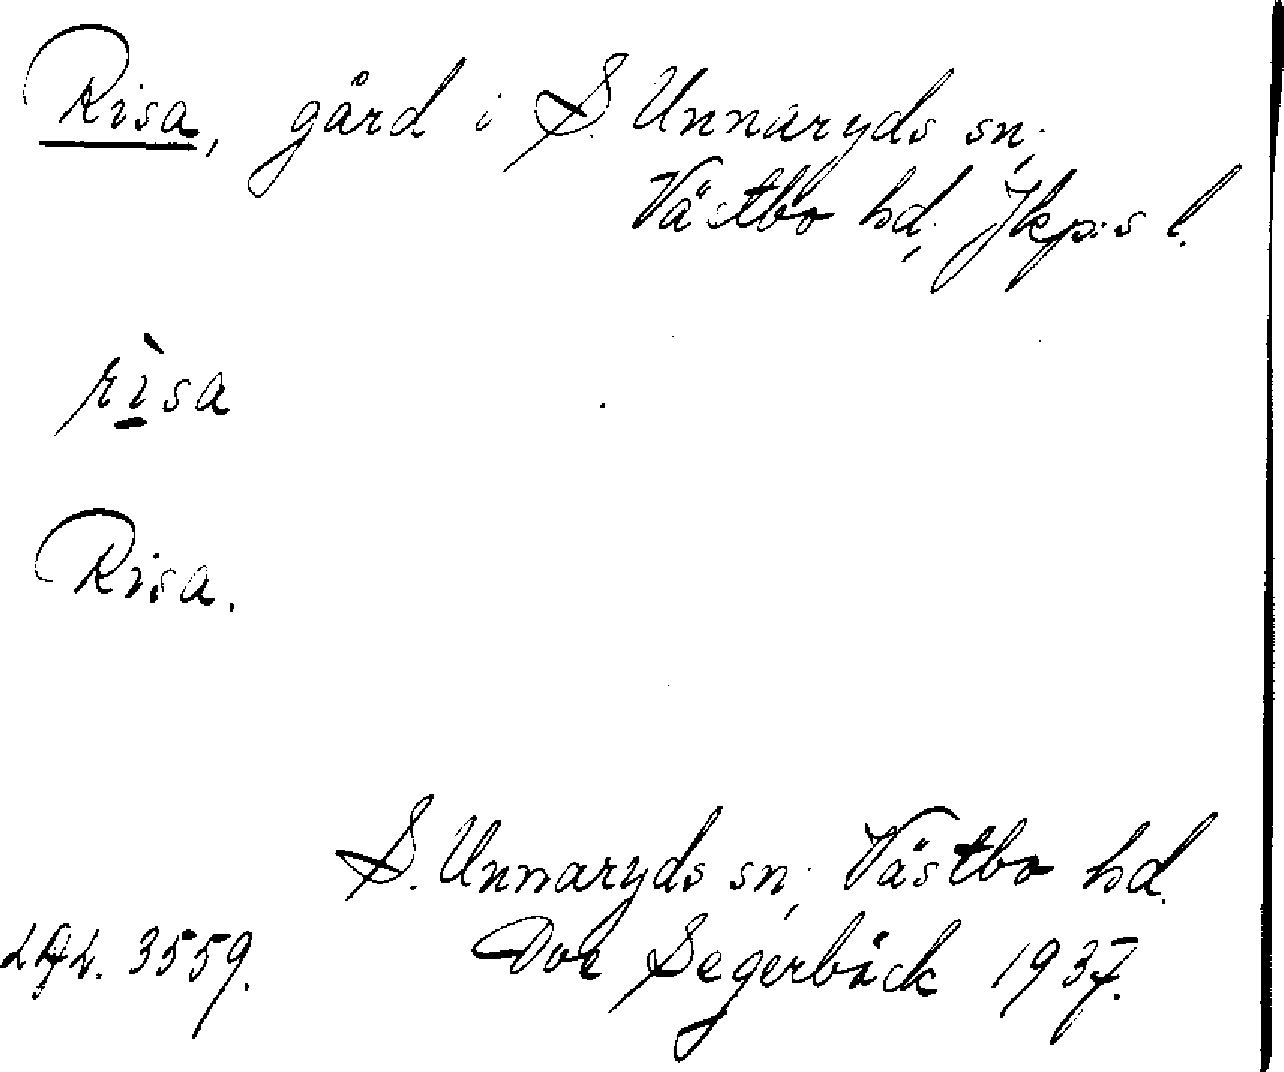 Risa, gård i S. Unnaryds sn.,
Västbo hd., Jkp:s l.
rìsa
Risa.
S. Unnaryds sn., Västbo hd.
3559. Segerbäck 1937.